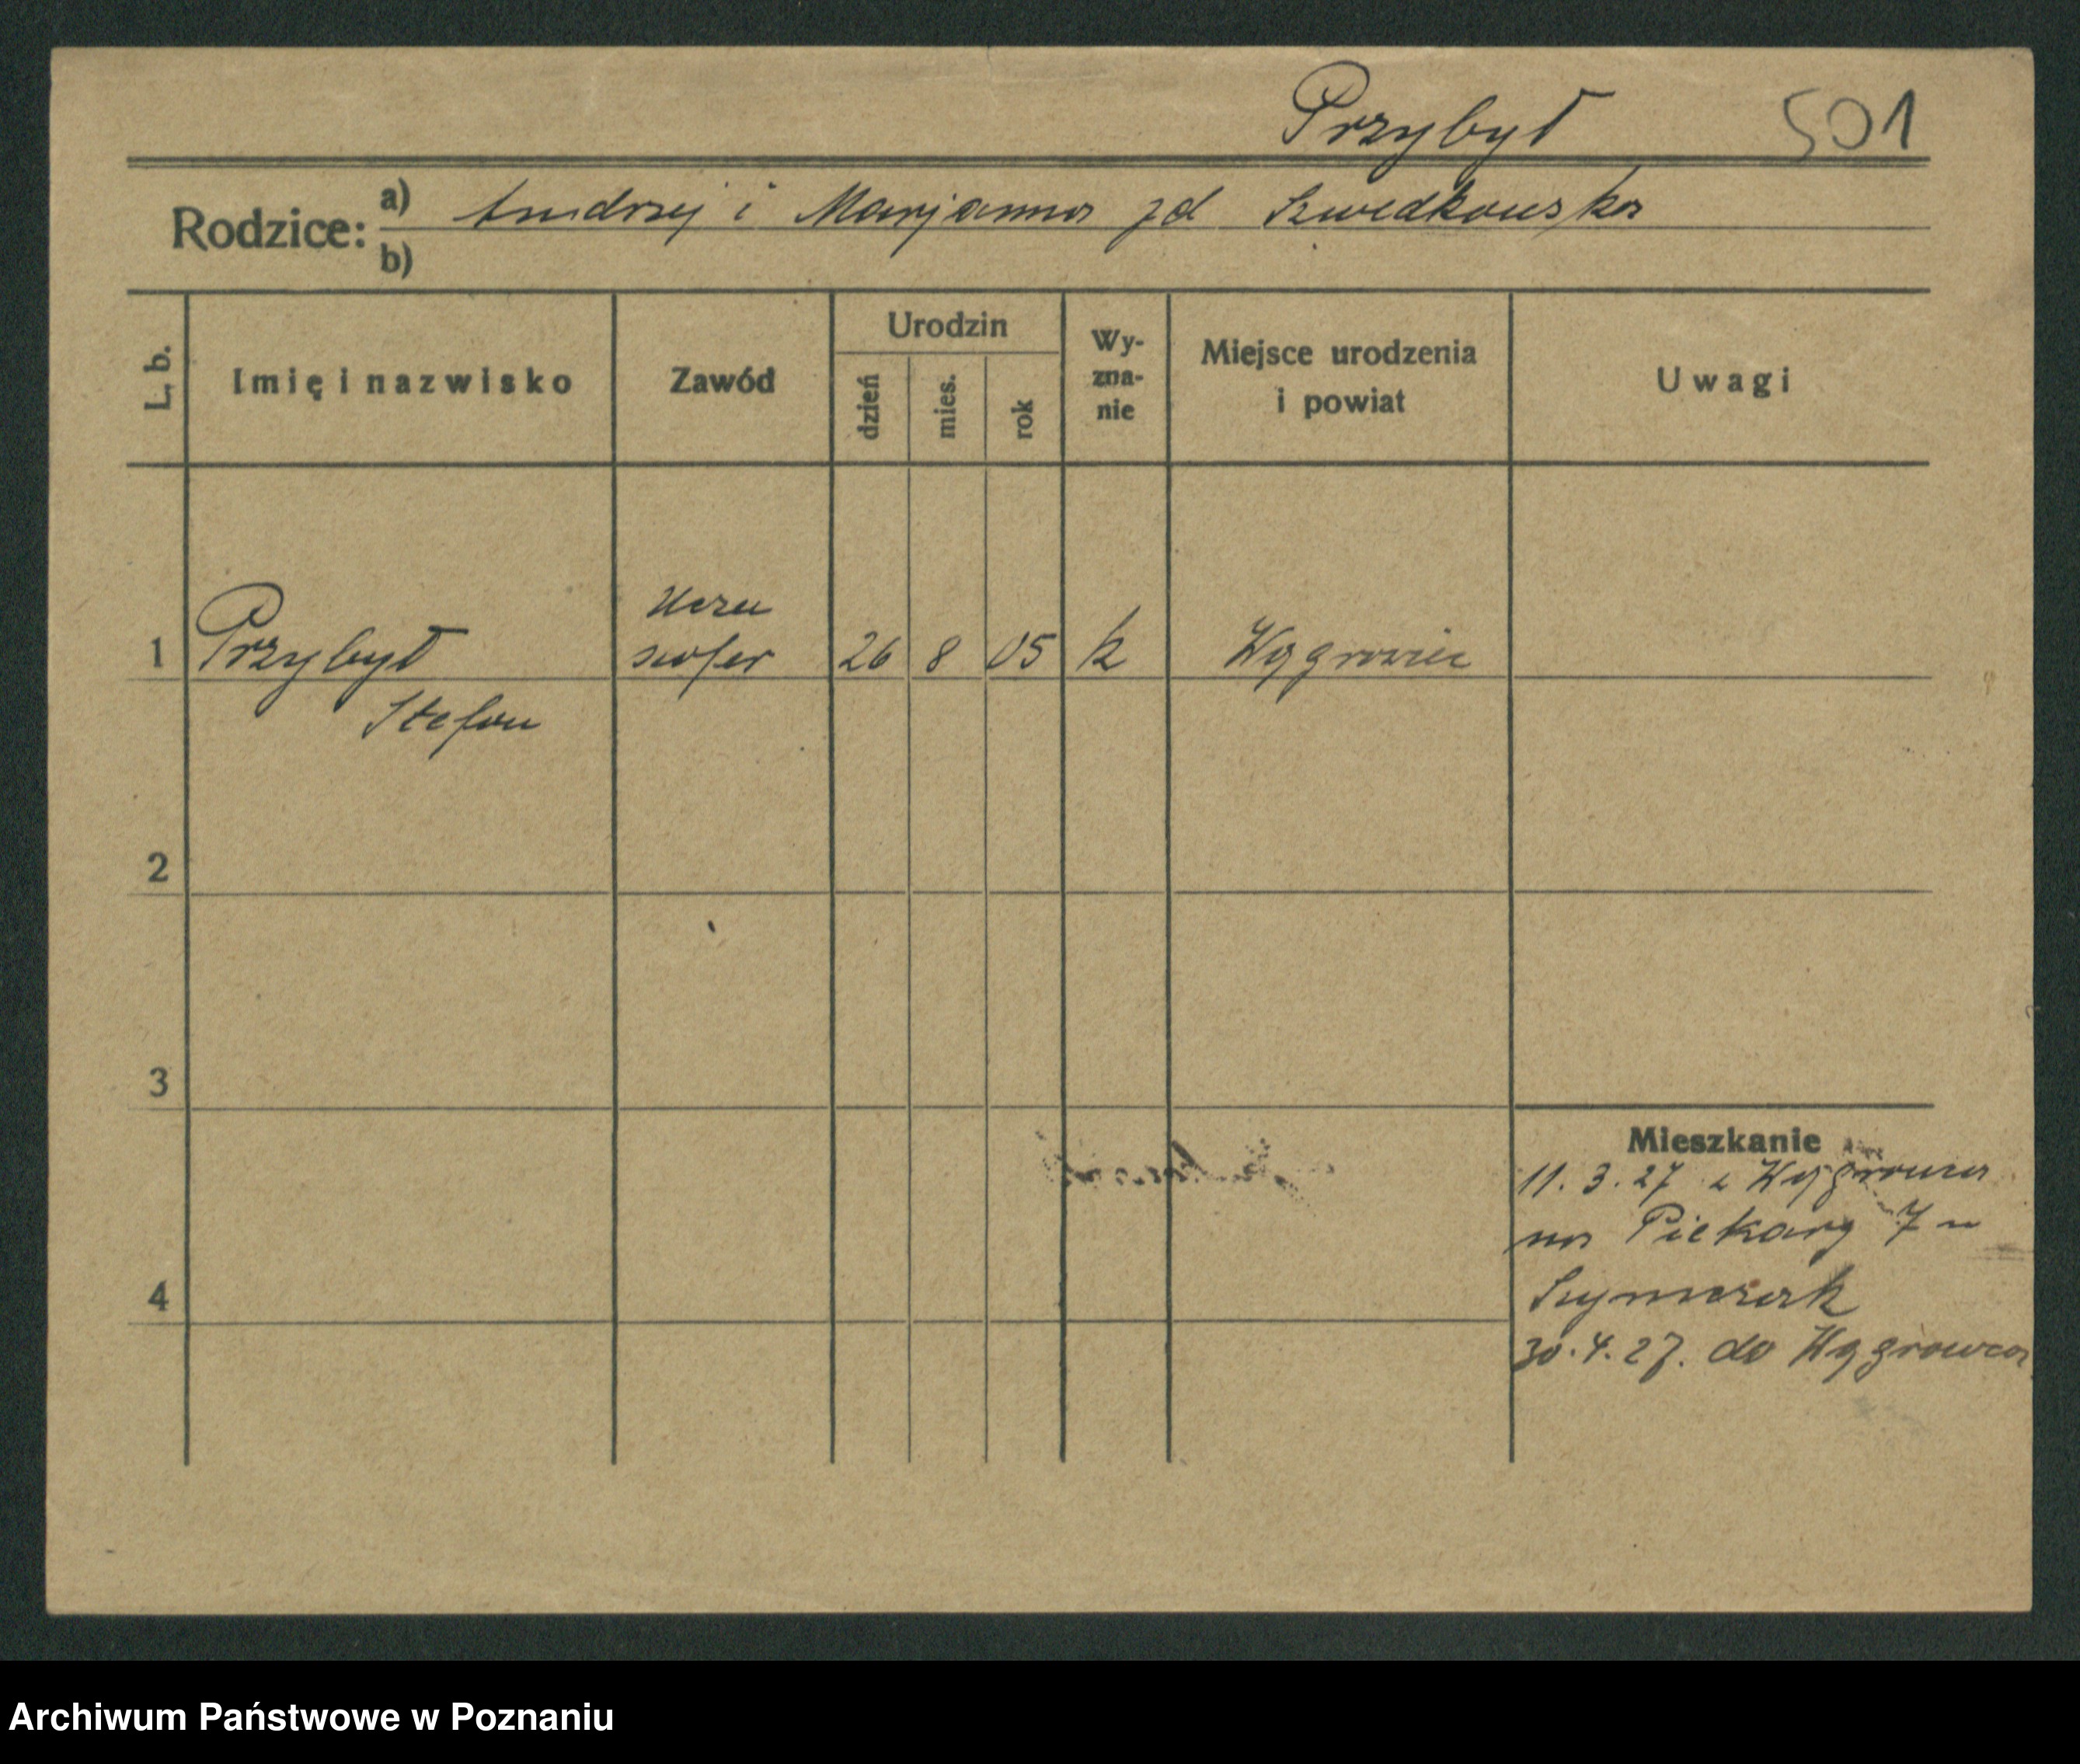 Przybył 501
Rodzice: a) Andrzej i Marjanna zd Szwedkowska
b)
L. b.
Imię i nazwisko
Zawód
Urodzin
dzień
mies.
rok
Wy-
zna-
nie
Miejsce urodzenia
i powiat
Uwagi
Uczeń
1 Przybył szofer 26 8 05 k Wągrowiec
Stefan
2
3
Mieszkanie
11. 3. 27 z Wągrowca
na Piekary 7 u
Szymczak
4
30. 4. 27. do Wągrowca
Archiwum Państwowe w Poznaniu